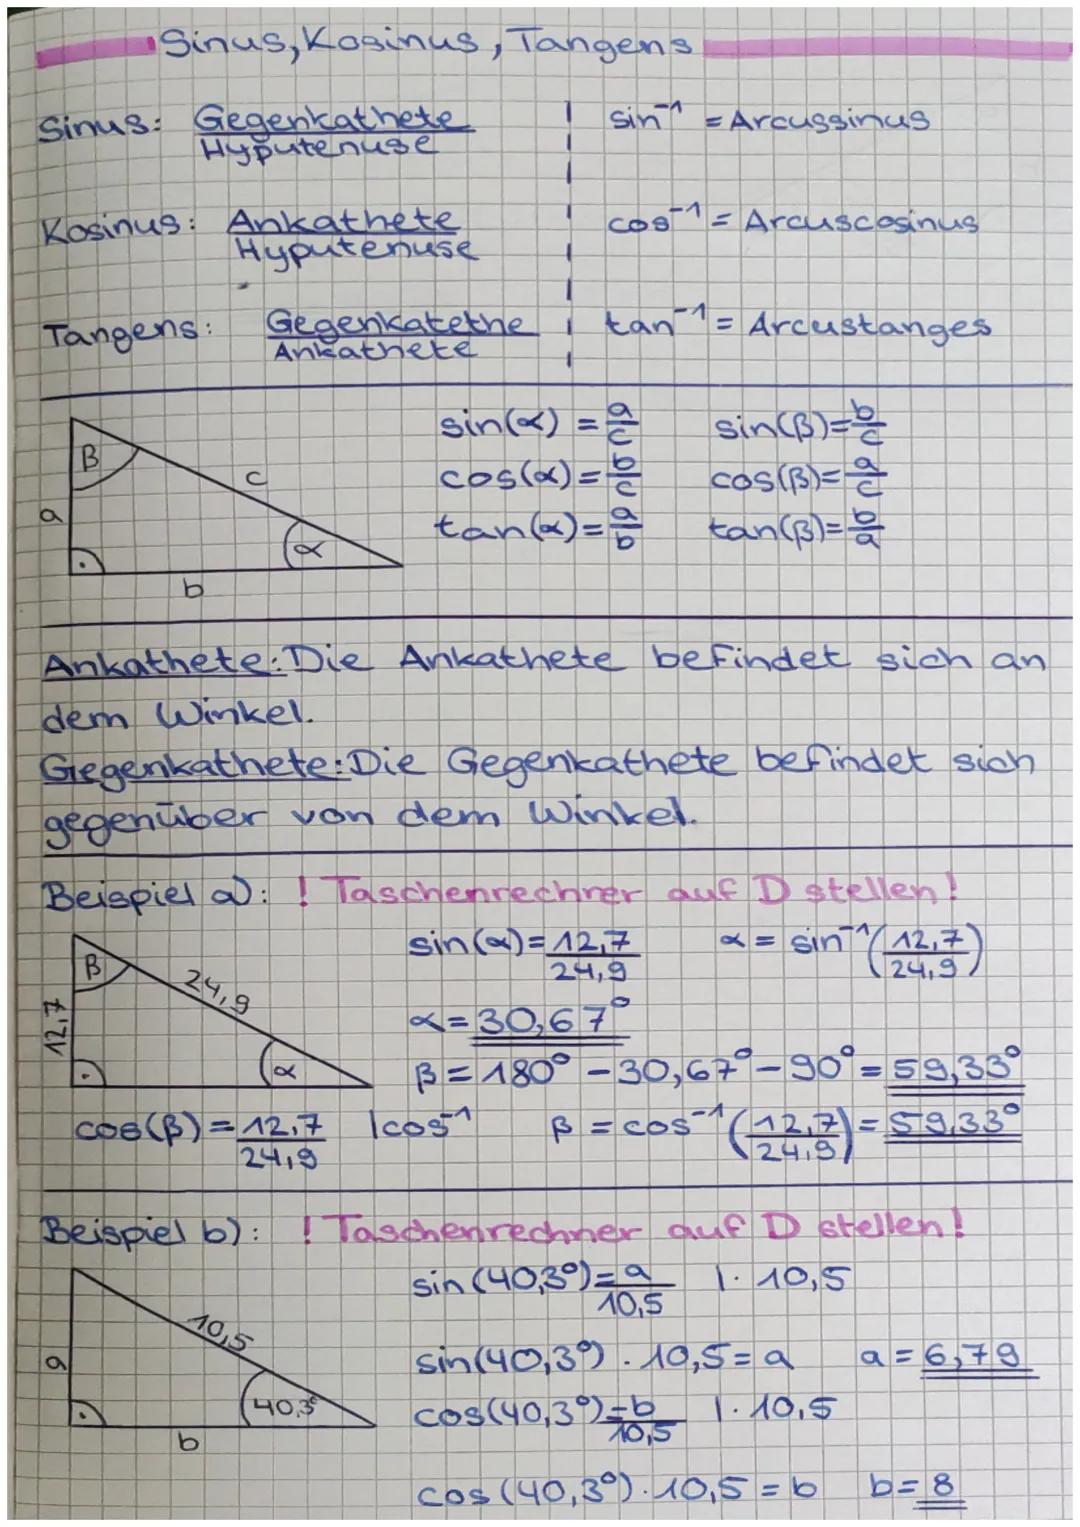 Sinus, Kosinus, Tangens
Sinus: Gegenkathete / Hyputenuse
sin⁻¹ = Arcussinus
Kosinus: Ankathete / Hyputenuse
cos⁻¹ = Arcuscosinus
Tangens: Gegenkatethe / Ankathete
tan⁻¹ = Arcustanges
β
c
a
α
b
sin(α) = a/c sin(β) = b/c
cos(α) = b/c cos(β) = a/c
tan(α) = a/b tan(β) = b/a
Ankathete: Die Ankathete befindet sich an
dem Winkel.
Gegenkathete: Die Gegenkathete befindet sich
gegenüber von dem Winkel.
Beispiel a): ! Taschenrechner auf D stellen!
β
24,9
12,7
α
sin(α) = 12,7/24,9 α = sin⁻¹(12,7/24,9)
α = 30,67°
β = 180° - 30,67° - 90° = 59,33°
cos(β) = 12,7/24,9 | cos⁻¹ β = cos⁻¹(12,7/24,9) = 59,33°
Beispiel b): ! Taschenrechner auf D stellen!
10,5
a
40,3°
b
sin(40,3°) = a/10,5 | · 10,5
sin(40,3°) · 10,5 = a a = 6,79
cos(40,3°) = b/10,5 | · 10,5
cos(40,3°) · 10,5 = b b = 8